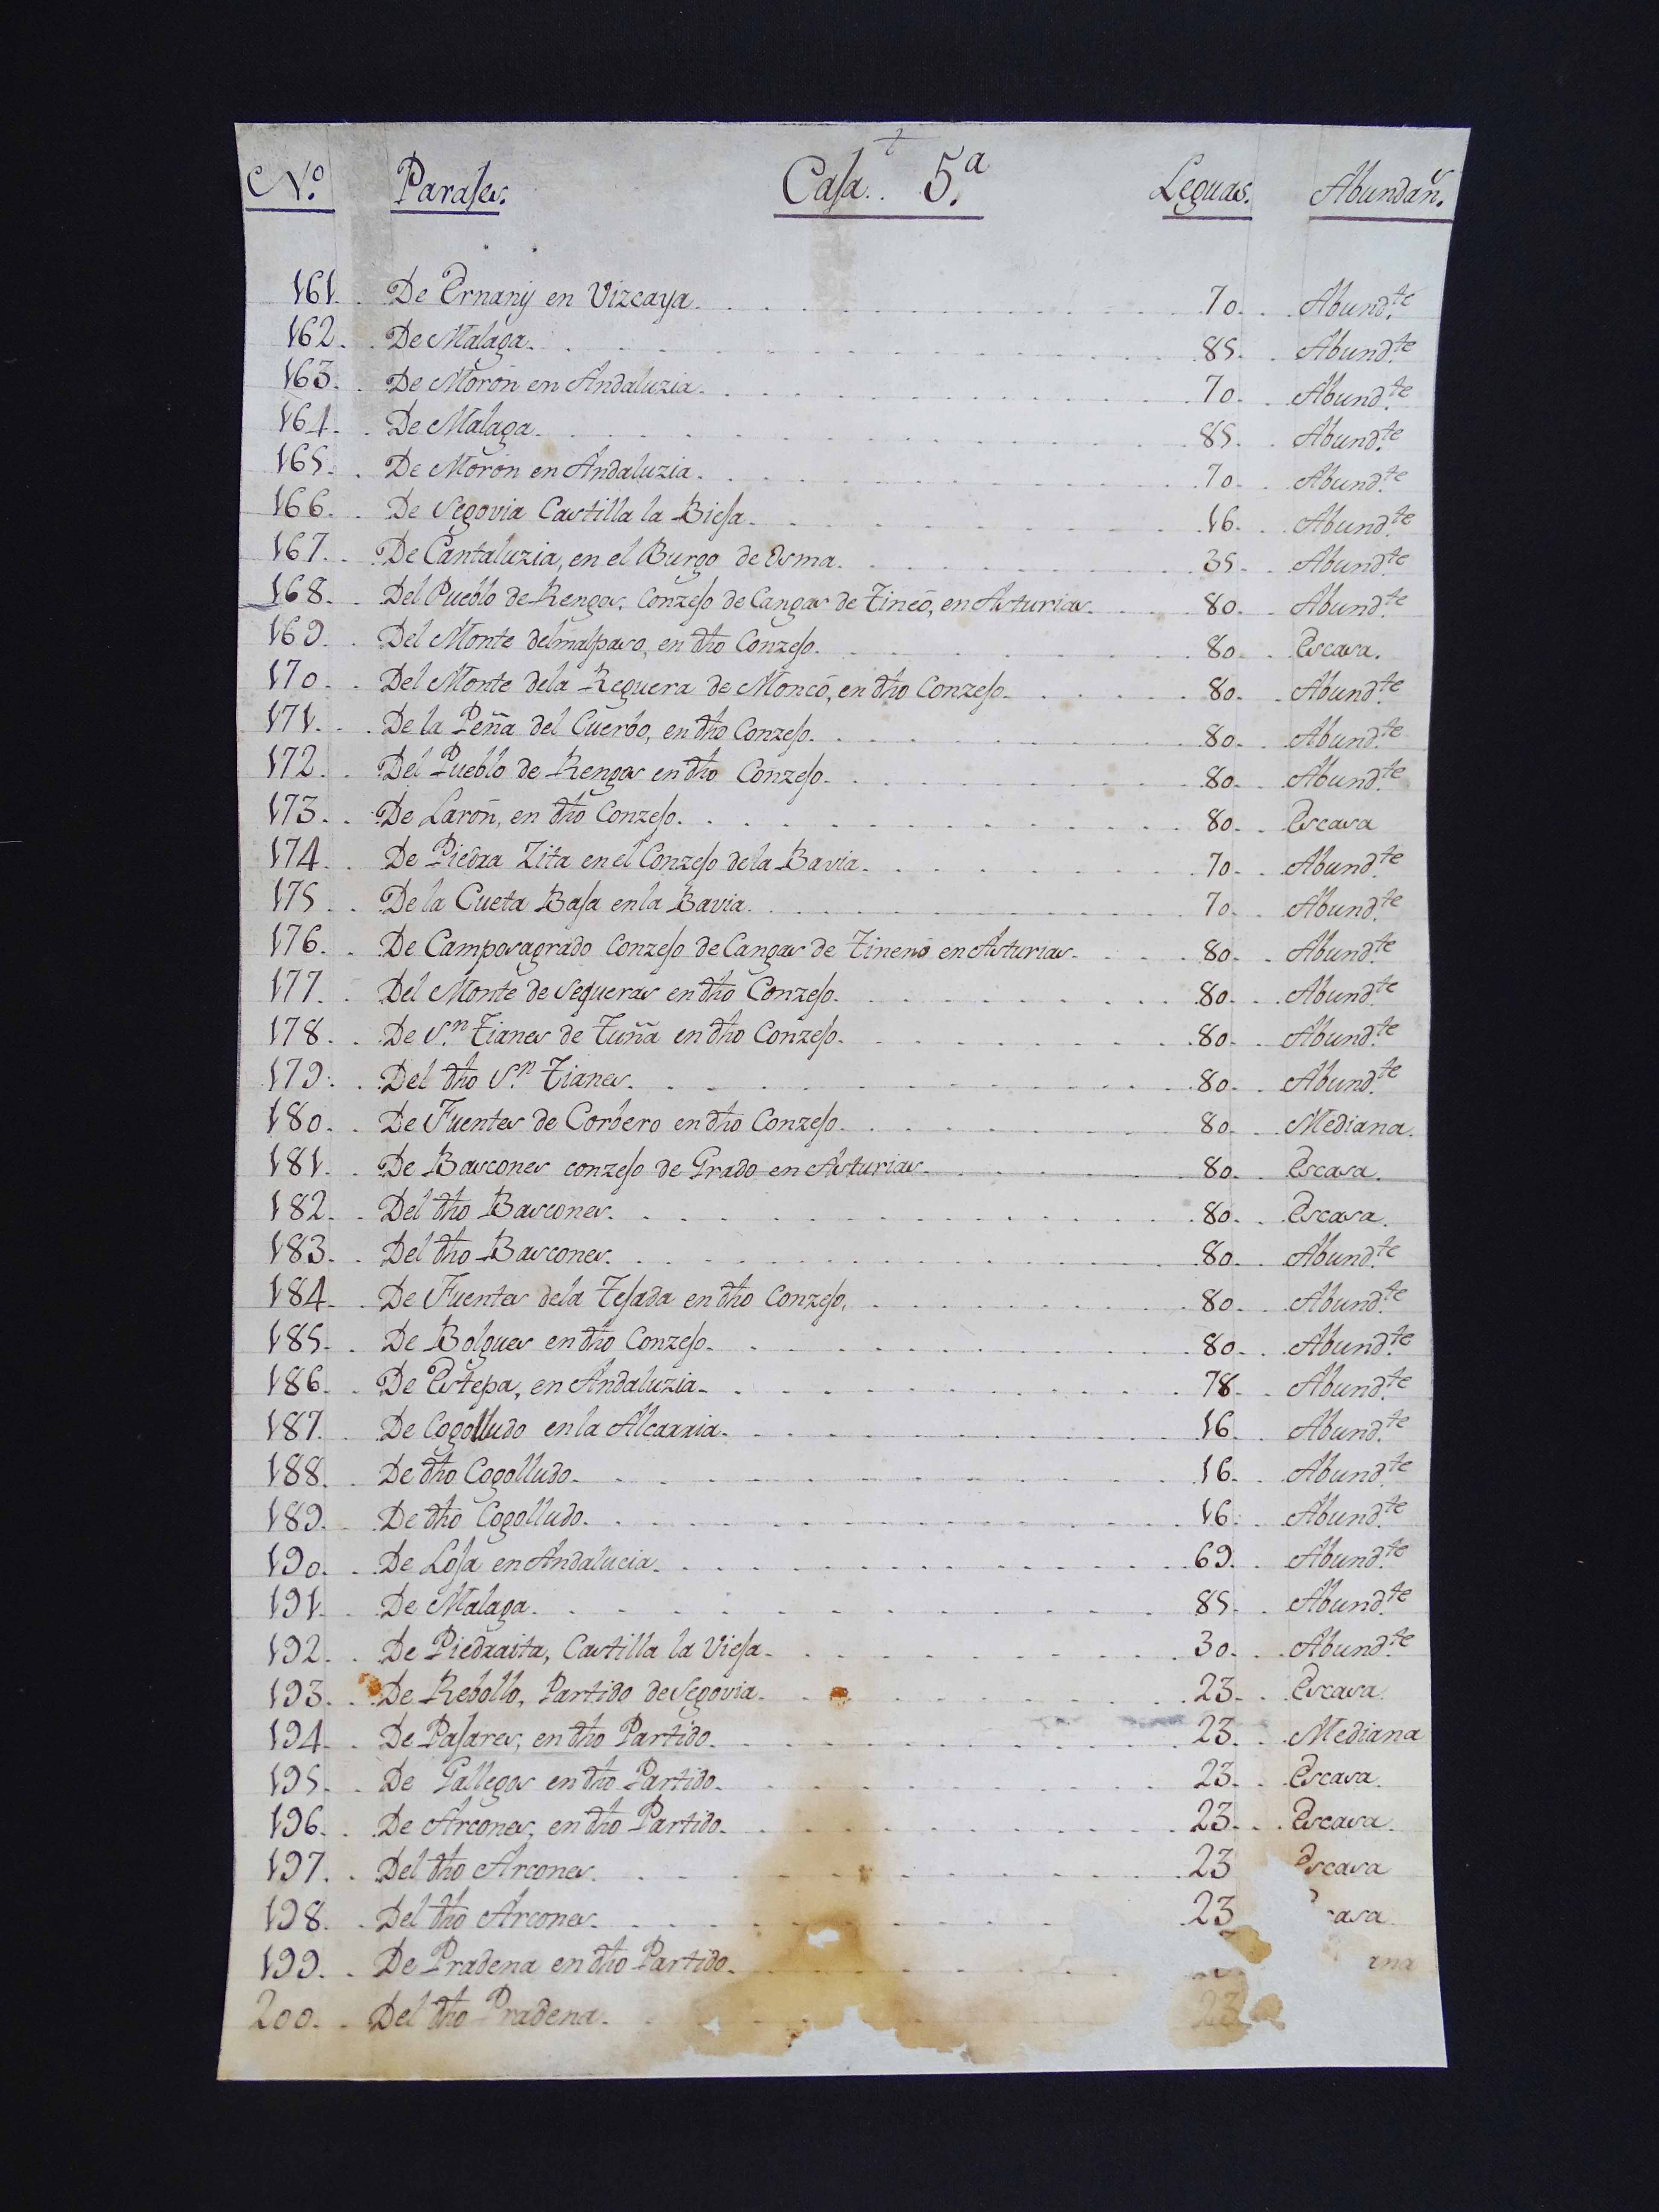 N.º Parajes. Caja. 5.ª Leguas. Abundañ.
161. De Ernany en Vizcaya. 70. Abund.te
162. De Malaga. 85. Abund.te
163. De Morón en Andaluzia. 70. Abund.te
164. De Malaga. 85. Abund.te
165. De Morón en Andaluzia. 70. Abund.te
166. De Segovia Castilla la Bieja. 16. Abund.te
167. De Cantaluzia, en el Burgo de Osma. 35. Abund.te
168. Del Pueblo de Rengos, Conzejo de Cangas de Tineo, en Asturias. 80. Abund.te
169. Del Monte del malpaso, en dho Conzejo. 80. Escasa.
170. Del Monte dela Reguera de Moncó, en dho Conzejo. 80. Abund.te
171. De la Peña del Cuerbo, en dho Conzejo. 80. Abund.te
172. Del Pueblo de Rengos en dho Conzejo. 80. Abund.te
173. De Larón, en dho Conzejo. 80. Escasa
174. De Piedra Zita en el Conzejo dela Bavia. 70. Abund.te
175. De la Cueta Baja en la Bavia. 70. Abund.te
176. De Camposagrado Conzejo de Cangas de Tineno en Asturias. 80. Abund.te
177. Del Monte de Sequeras en dho Conzejo. 80. Abund.te
178. De S.n Tianes de Tuña en dho Conzejo. 80. Abund.te
179. Del dho S.n Tianes. 80. Abund.te
180. De Fuentes de Corbero en dho Conzejo. 80. Mediana.
181. De Bascones conzejo de Grado en Asturias. 80. Escasa.
182. Del dho Bascones. 80. Escasa.
183. Del dho Bascones. 80. Abund.te
184. De Fuentes dela Tejada en dho Conzejo. 80. Abund.te
185. De Bolgues en dho Conzejo. 80. Abund.te
186. De Estepa, en Andaluzia. 78. Abund.te
187. De Cogolludo en la Alcarria. 16. Abund.te
188. De dho Cogolludo. 16. Abund.te
189. De dho Cogolludo. 16. Abund.te
190. De Loja en Andalucia. 69. Abund.te
191. De Malaga. 85. Abund.te
192. De Piedraita, Castilla la Vieja. 30. Abund.te
193. De Rebollo, Partido de Segovia. 23. Escasa.
194. De Pajares, en dho Partido. 23. Mediana
195. De Gallegos en dho Partido. 23. Escasa.
196. De Arcones, en dho Partido. 23. Escasa.
197. Del dho Arcones. 23 Escasa
198. Del dho Arcones. 23 casa.
199. De Pradena en dho Partido. ana
200. Del dho Pradena. 23